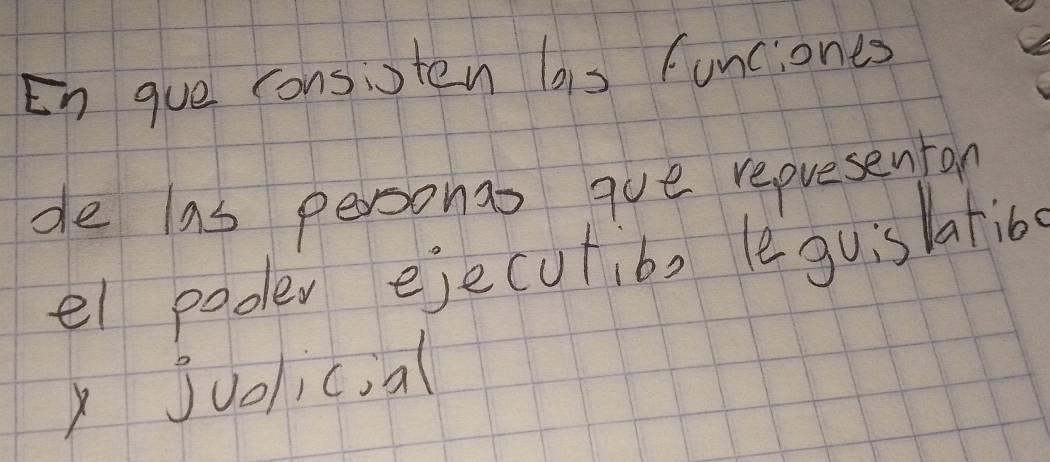 En que consisten las funciones
de las personas que representan
el poder ejecutibo leguislatibo
y judicial